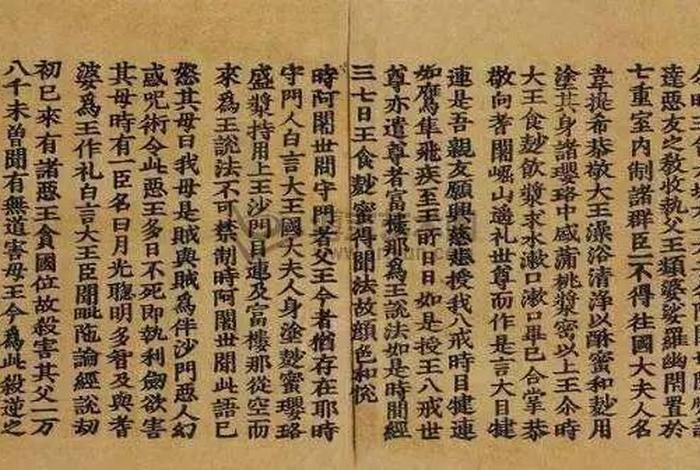 達惡友之教收執父王頻婆娑羅幽閉置於
七重室内制諸群臣一不得往國大夫人名
韋提希恭敬大王澡浴清淨以酥蜜和麨用
塗其身諸瓔珞中盛蒲桃漿密以上王尒時
大王食麨飲漿求水漱口漱口畢已合掌恭
敬向耆闍崛山遙礼世尊而作是言大目犍
連是吾親友願興慈悲授我八戒時目犍連
如鷹隼飛疾至王所日日如是授王八戒世
尊亦遣尊者富樓那為王說法如是時間經
三七日王食麨蜜得聞法故顏色和悅
時阿闍世問守門者父王今者猶存在耶時
守門人白言大王國大夫人身塗麨蜜瓔珞
盛漿持用上王沙門目連及富樓那從空而
來為王說法不可禁制時阿闍世聞此語已
怒其母曰我母是賊與賊為伴沙門惡人幻
惑呪術令此惡王多日不死即執利劒欲害
其母時有一臣名曰月光聰明多智及與耆
婆為王作礼白言大王臣聞毗陁論經說劫
初已來有諸惡王貪國位故殺害其父一万
八千未曾聞有無道害母王今為此殺逆之